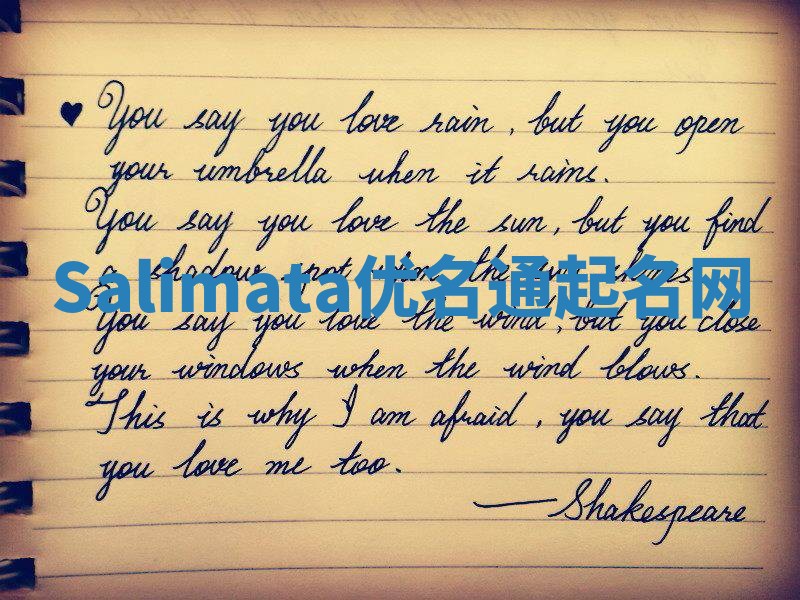 ♥ You say you love rain, but you open
your umbrella when it rains.
You say you love the sun, but you find
a shadow spot when the sun shines.
Salimata优名通起名网
You say you love the wind, but you close
your windows when the wind blows.
This is why I am afraid, you say that
you love me too.
—Shakespeare